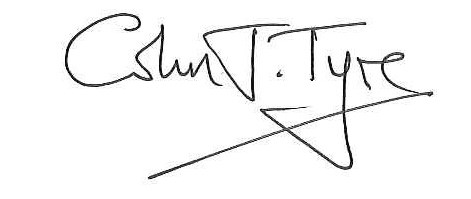 Colin T. Tyre